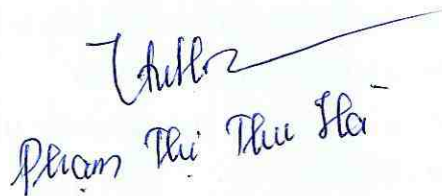 Phạm Thị Thu Hà